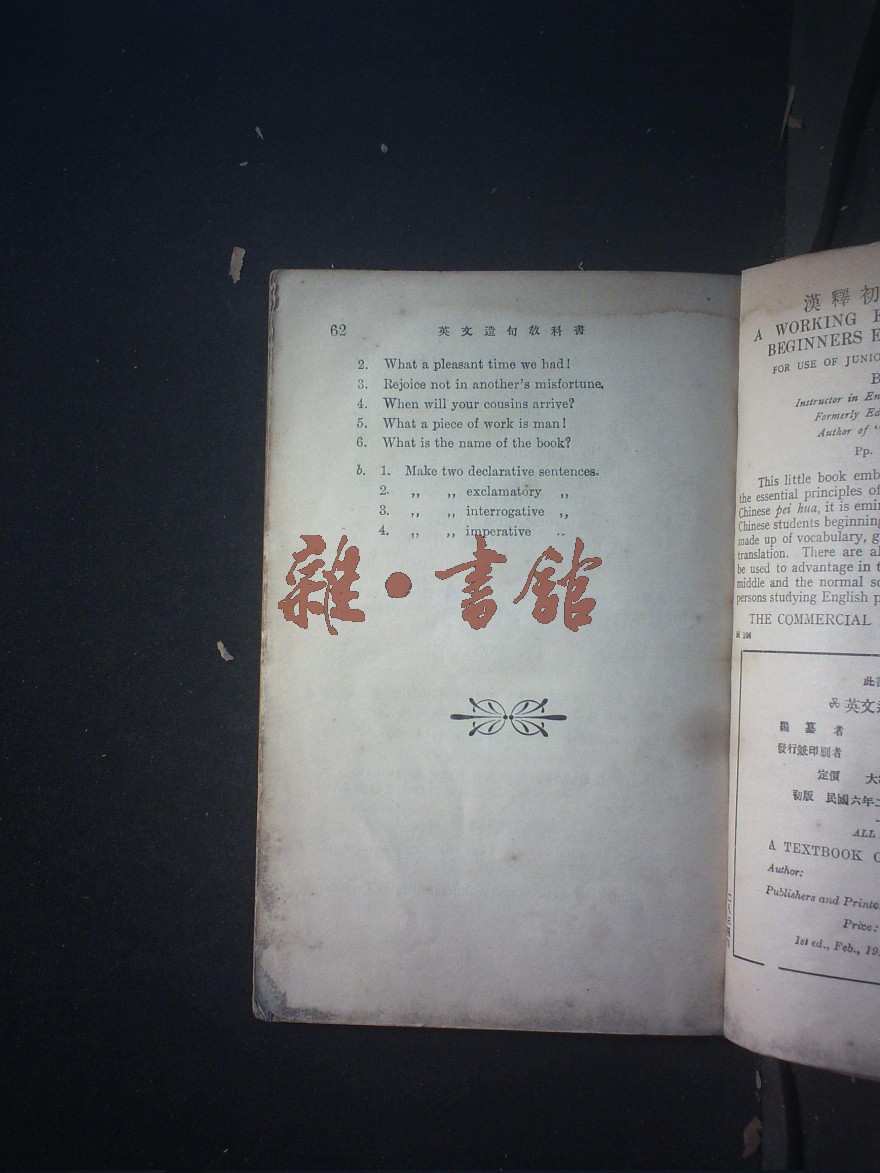 62 英文造句教科書
2. What a pleasant time we had!
3. Rejoice not in another's misfortune.
4. When will your cousins arrive?
5. What a piece of work is man!
6. What is the name of the book?
b. 1. Make two declarative sentences.
2. ,, ,, exclamatory ,,
3. ,, ,, interrogative ,,
4. ,, ,, imperative ,,
雜·書館
漢釋初
A WORKING
BEGINNERS
FOR USE OF JUNIO
B
Instructor in En
Formerly Ed
Author of
Pp.
This little book emb
the essential principles of
Chinese pei hua, it is emi
Chinese students beginning
made up of vocabulary, g
translation. There are al
be used to advantage in t
middle and the normal sc
persons studying English p
THE COMMERCIAL
此
英文
編纂者
發行兼印刷者
定價 大
初版 民國六年二
ALL
A TEXTBOOK O
Author:
Publishers and Printe
Price:
1st ed., Feb., 19